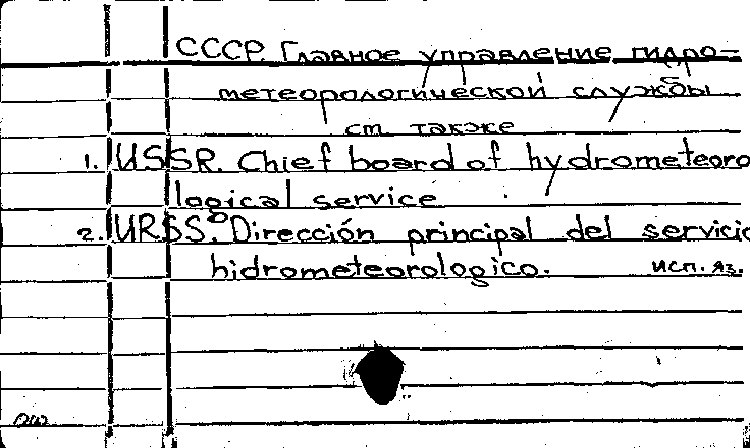 СССР. Главное управление гидро-
метеорологической службы
см. также
1. USSR. Chief board of hydrometeoro
logical service
2. URSS. Dirección principal del servicio
hidrometeorologico. исп. яз.